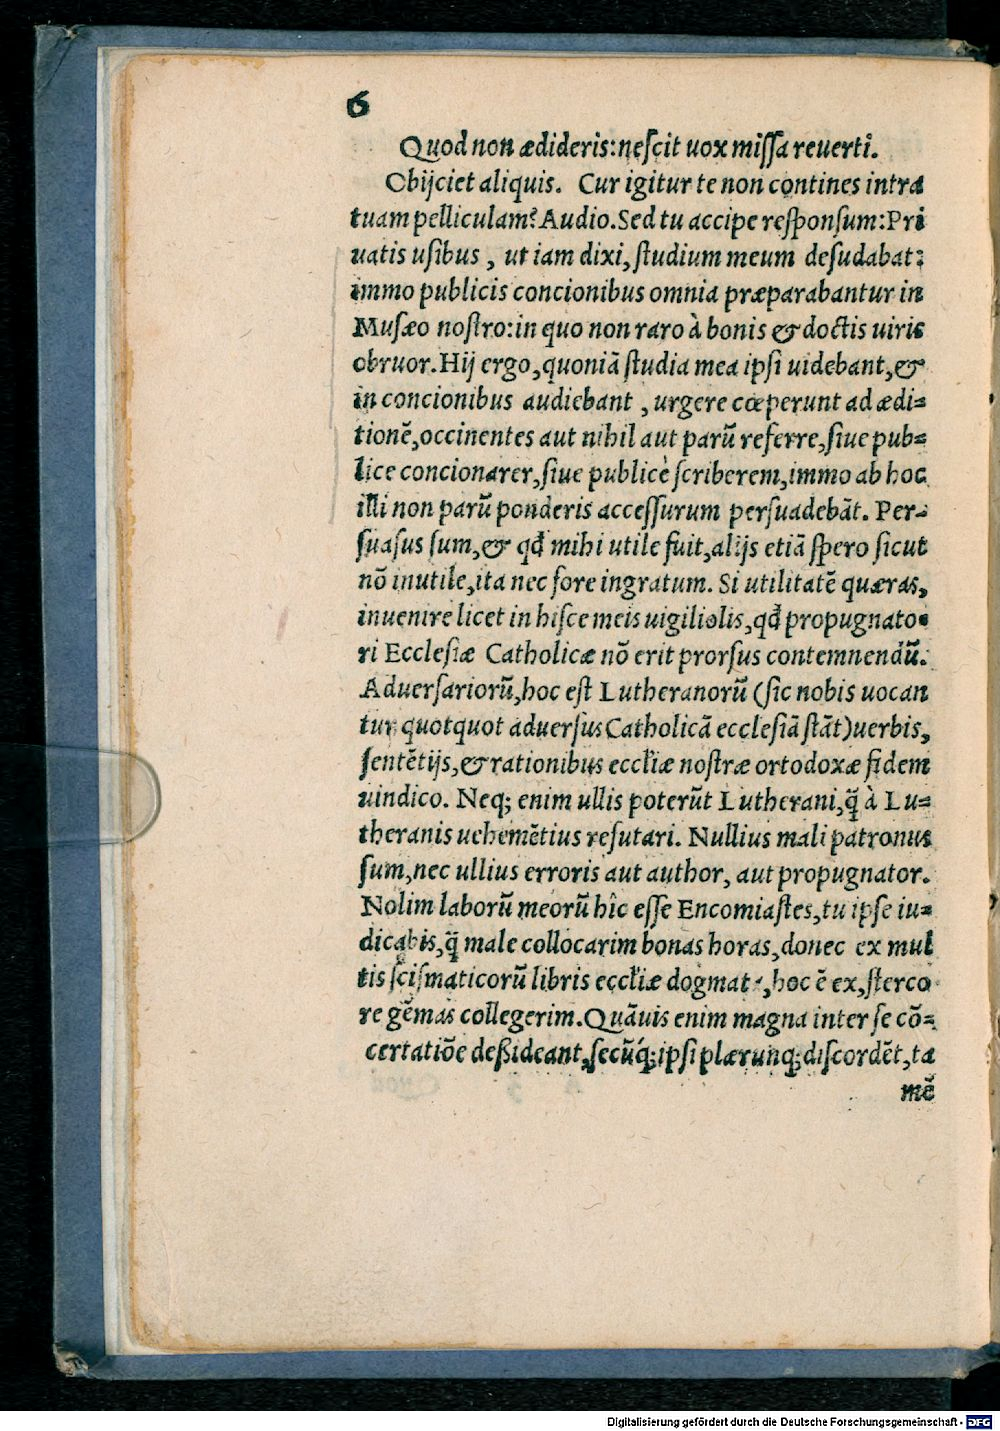 6
Quod non ædideris:neſcit uox miſſa reuerti.
Obijciet aliquis. Cur igitur te non contines intra
tuam pelliculam? Audio. Sed tu accipe reſponſum: Pri
uatis uſibus, ut iam dixi, ſtudium meum deſudabat:
immo publicis concionibus omnia præparabantur in
Muſæo noſtro: in quo non raro à bonis & doctis uiris
obruor. Hij ergo, quoniā ſtudia mea ipſi uidebant, &
in concionibus audiebant, urgere cœperunt ad ædi=
tionē, occinentes aut nihil aut parū referre, ſiue pub=
lice concionarer, ſiue publicè ſcriberem, immo ab hoc
illi non parū ponderis acceſſurum perſuadebāt. Per=
ſuaſus ſum, & qd̄ mihi utile fuit, alijs etiā ſpero ſicut
nō inutile, ita nec fore ingratum. Si utilitatē quæras,
inuenire licet in hiſce meis uigiliolis, qd̄ propugnato=
ri Eccleſiæ Catholicæ nō erit prorſus contemnendū.
Aduerſariorū, hoc eſt Lutheranorū (ſic nobis uocan
tur quotquot aduerſus Catholicā eccleſiā ſtāt) uerbis,
ſentētijs, & rationibus eccl'iæ noſtræ ortodoxæ fidem
uindico. Neq; enim ullis poterūt Lutherani, q̄ à Lu=
theranis uehemētius refutari. Nullius mali patronus
ſum, nec ullius erroris aut author, aut propugnator.
Nolim laborū meorū hîc eſſe Encomiaſtes, tu ipſe iu=
dicabis, q̄ male collocarim bonas horas, donec ex mul
tis ſciſmaticorū libris eccl'iæ dogmata, hoc ē ex, ſterco
re gēmas collegerim. Quāuis enim magna inter ſe cō=
certatiōe deßideant, ſecūq́; ipſi plærunq; diſcordēt, ta
mē
Digitalisierung gefördert durch die Deutsche Forschungsgemeinschaft - DFG